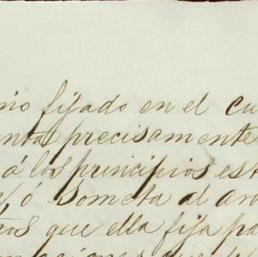 fijado en el cu
precisamente
á los principios est
ó someta al ar
que ella fija pa